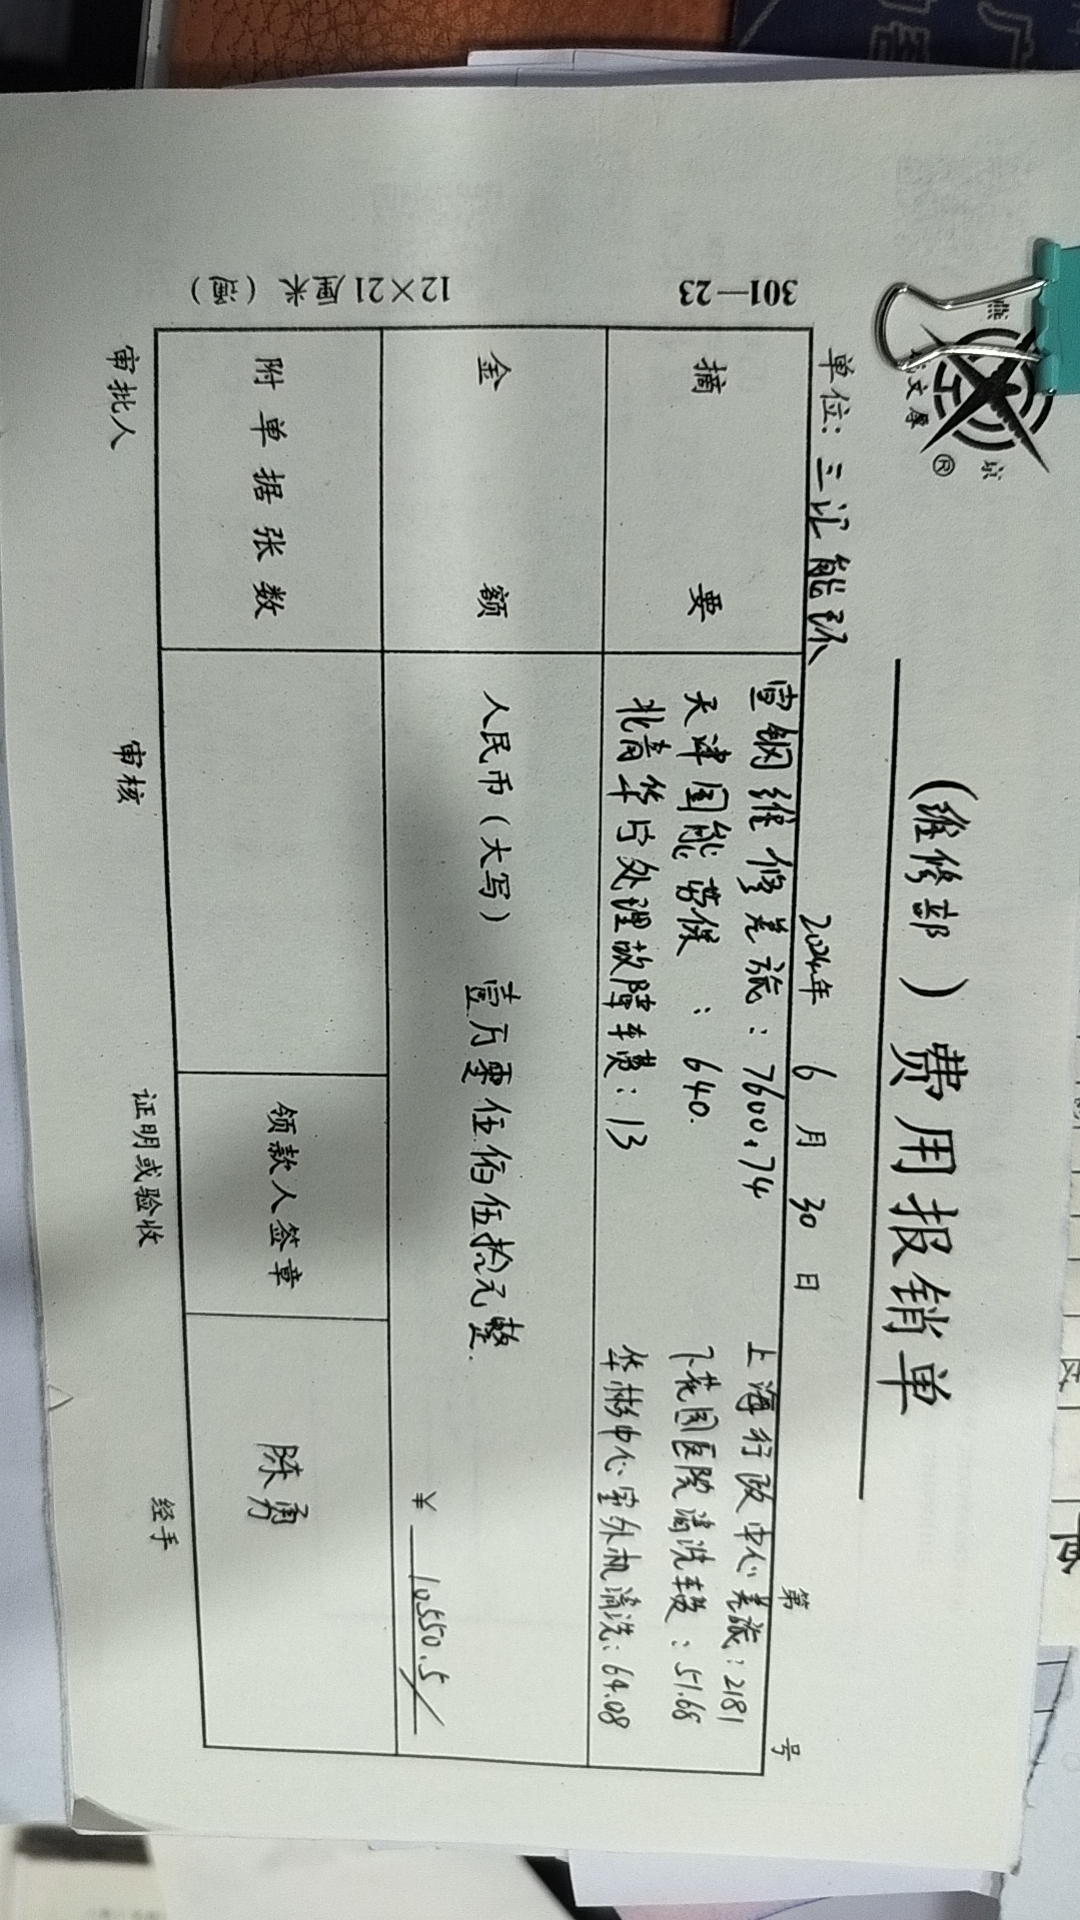 (维修部)费用报销单
单位: 三汇能环 2024年 6 月 30 日 第 号
摘要
宣钢维修差旅:7600.74 上海行政中心差旅:2181
天津国能劳保:640. 下花园医院清洗车费:51.68
北青华厅处理故障车费:13 华彬中心室外机清洗:64.08
金额
人民币(大写) 壹万零伍佰伍拾元整.
¥ 10550.5
附单据张数
领款人签章 陈勇
审批人 审核 证明或验收 经手
301—23
12×21厘米
®